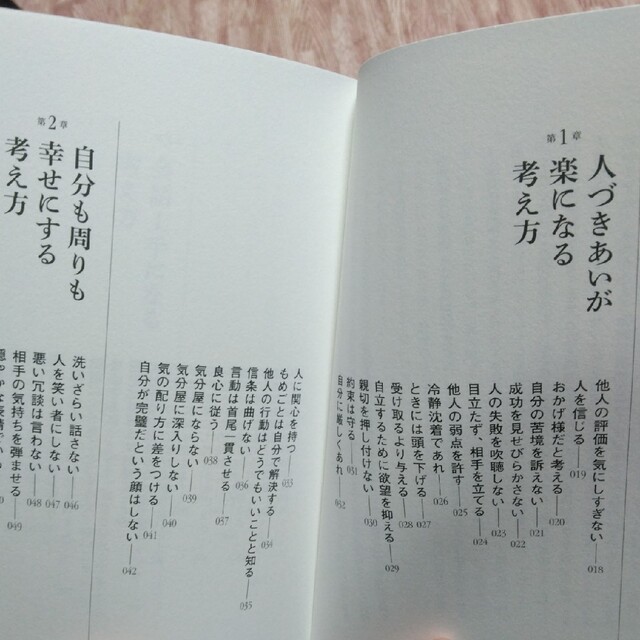 第1章
人づきあいが
楽になる
考え方
他人の評価を気にしすぎない――018
人を信じる――019
おかげ様だと考える――020
自分の苦境を訴えない――021
成功を見せびらかさない――022
人の失敗を吹聴しない――023
目立たず、相手を立てる――024
他人の弱点を許す――025
冷静沈着であれ――026
ときには頭を下げる――027
受け取るより与える――028
自立するために欲望を抑える――029
親切を押し付けない――030
約束は守る――031
自分に厳しくあれ――032
人に関心を持つ――033
もめごとは自分で解決する――034
他人の行動はどうでもいいことと知る――035
信条は曲げない――036
言動は首尾一貫させる――037
良心に従う――038
気分屋にならない――039
気分屋に深入りしない――040
気の配り方に差をつける――041
自分が完璧だという顔はしない――042
第2章
自分も周りも
幸せにする
考え方
洗いざらい話さない――046
人を笑い者にしない――047
悪い冗談は言わない――048
相手の気持ちを弾ませる――049